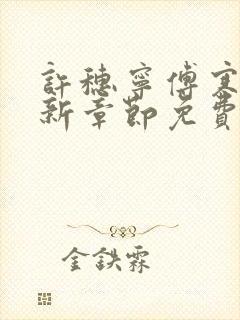 許穗寧傅寒
新章節免費
金鉄霖